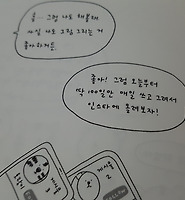 음.. 그럼 나도 해볼래
사실 새도 그림 그리는 거
좋아하거든.
좋아! 그럼 오늘부터
딱 100일만 매일 쓰고 그려서
인스타에 올려보자!